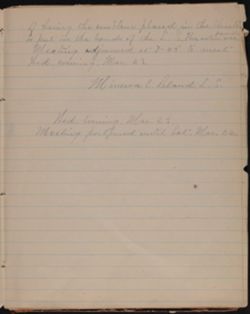 of having the emblem placed in the
to put in the hands of the
Meeting adjourned at 7-45 to meet
Wed evening, Mar 22
Minerva C. Leland L. S.
Wed. evening. Mar. 22.
Meeting postponed until Sat. Mar.